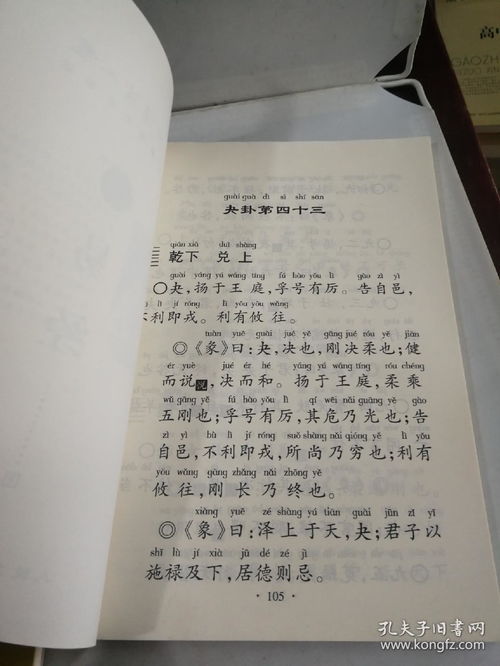 高
GAOZH
guài guà dì sì shí sān
夬卦第四十三
qián xià duì shàng
乾下 兑上
guài yáng yú wáng tíng fú hào yǒu lì gào zì yì
○夬,扬于王庭,孚号有厉。告自邑,
lì jí róng lì yǒu yōu wǎng
不利即戎。利有攸往。
tuàn yuē guài jué yě gāng jué róu yě jiàn
◎《彖》曰:夬,决也,刚决柔也;健
ér yuè jué ér hé yáng yú wáng tíng róu chéng
而说,决而和。扬于王庭,柔乘
wǔ gāng yě fú hào yǒu lì qí wēi nǎi guāng yě gào
五刚也;孚号有厉,其危乃光也;告
zì yì bù lì jí róng suǒ shàng nǎi qióng yě lì yǒu
自邑,不利即戎,所尚乃穷也;利有
yōu wǎng gāng zhǎng nǎi zhōng yě
攸往,刚长乃终也。
xiàng yuē zé shàng yú tiān guài jūn zǐ yǐ
◎《象》曰:泽上于天,夬;君子以
shī lù jí xià jū dé zé jì
施禄及下,居德则忌。
·105·
孔夫子旧书网
www.kongfz.com